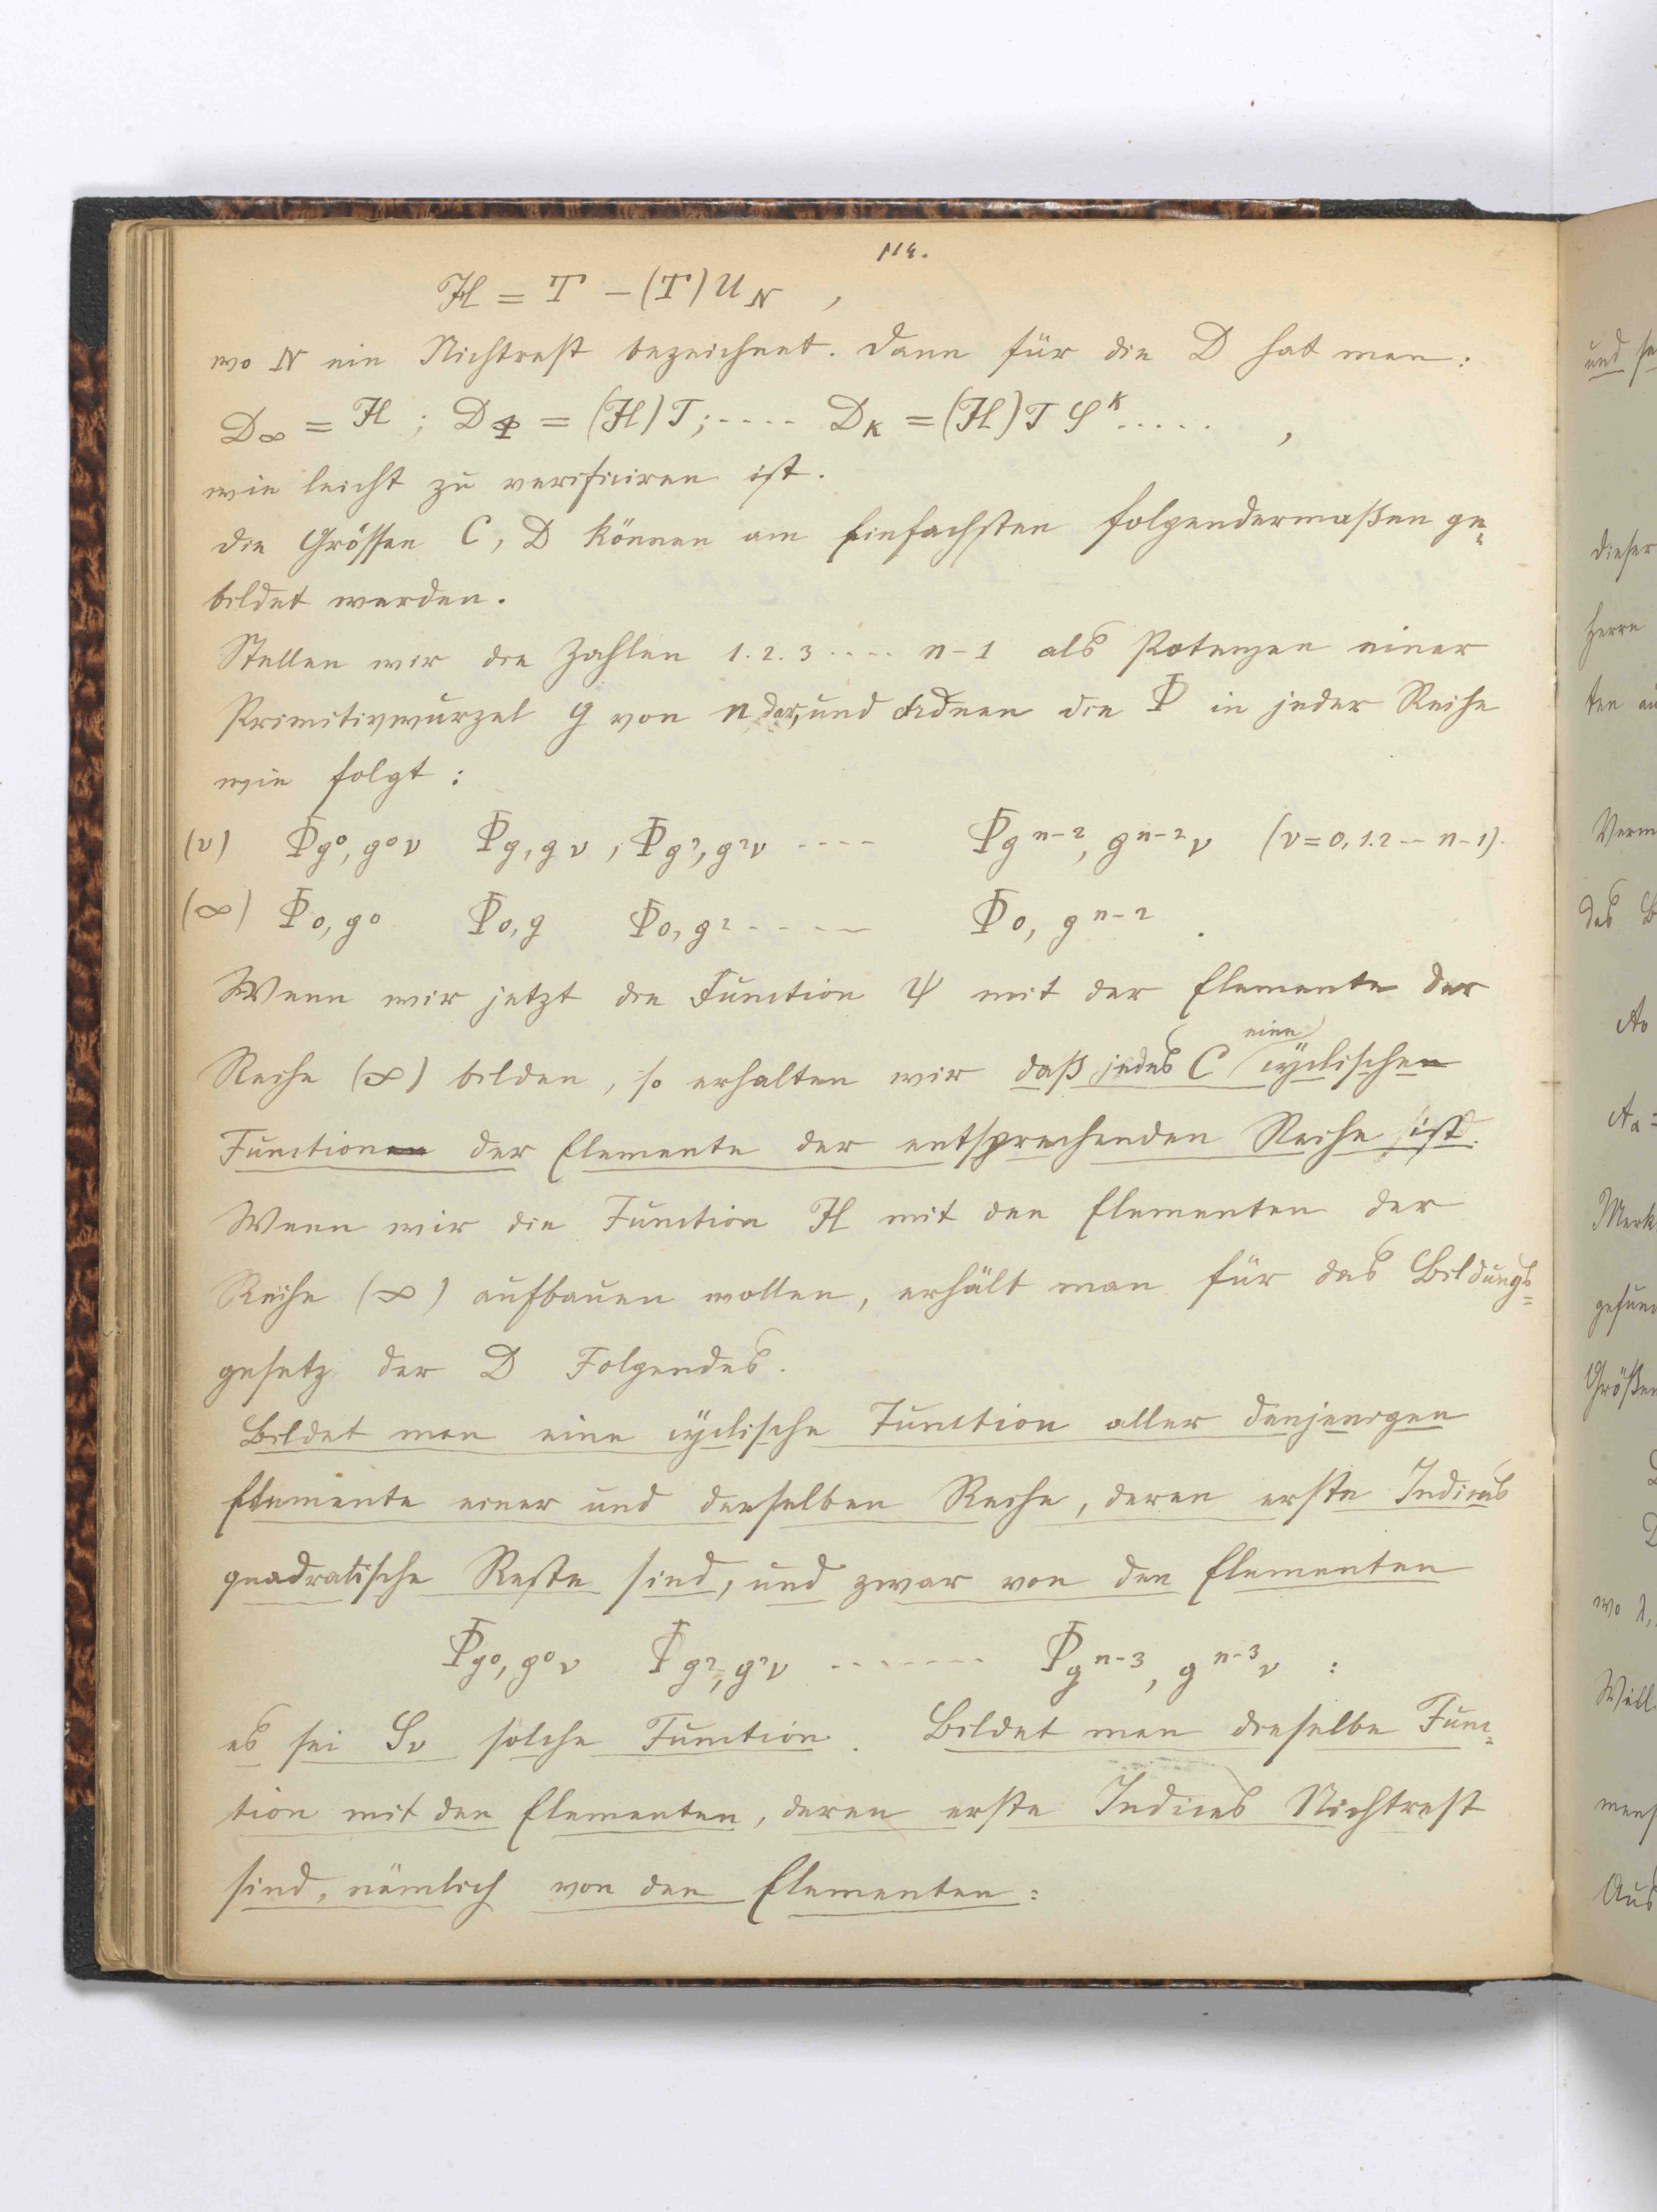 114.
H = T – (T) U_N ,
wo N ein Nichtrest bezeichnet. Dann für die D hat man:
D_∞ = H ; D_Φ = (H) T ; ---- D_K = (H) T S^K ..... ,
wie leicht zu verificiren ist.
Die Grössen C, D können am Einfachsten folgendermaßen ge=
bildet werden.
Stellen wir die Zahlen 1. 2. 3 ---- n-1 als Potenzen einer
Primitivwurzel g von n dar, und ordnen die Φ in jeder Reihe
wie folgt :
(ν) Φ_{g^0, g^0 ν} Φ_{g, g ν} ; Φ_{g^2, g^2 ν} ---- Φ_{g^{n-2}, g^{n-2} ν} (ν = 0, 1. 2 -- n-1).
(∞) Φ_{0, g^0} Φ_{0, g} Φ_{0, g^2} ----- Φ_{0, g^{n-2}} .
Wenn wir jetzt die Function Ψ mit der Elemente der
Reihe (∞) bilden, so erhalten wir daß jedes C eine cyclischen
Functionen der Elemente der entsprechenden Reihe ist.
Wenn wir die Function H mit den Elementen der
Reihe (∞) aufbauen wollen, erhält man für das Bildungs=
gesetz der D Folgendes.
Bildet man eine cyclische Function aller denjenigen
Elemente einer und derselben Reihe, deren erste Indices
quadratische Reste sind, und zwar von den Elementen
Φ_{g^0, g^0 ν} Φ_{g^2, g^2 ν} ------- Φ_{g^{n-3}, g^{n-3} ν} :
es sei S_ν solche Function. Bildet man dieselbe Func=
tion mit den Elementen, deren erste Indices Nichtrest
sind, nämlich von den Elementen :
und
dieser
Herrn
ten
das
Merk
Größen
wo λ,
Aus